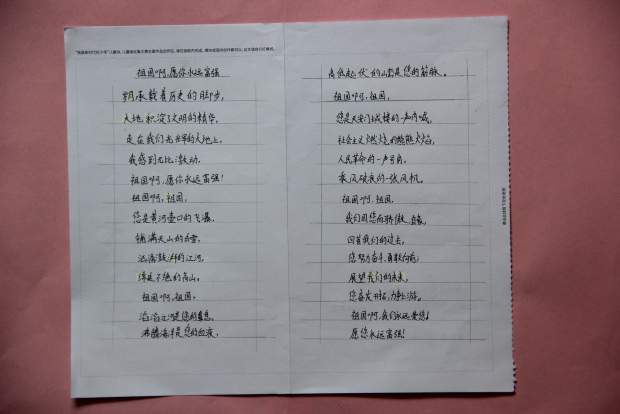 祖国啊,愿你永远富强
岁月承载着历史的脚步,
大地积淀了文明的精华,
走在我们光辉的大地上,
我感到无比激动,
祖国啊,愿你永远富强!
祖国啊,祖国,
您是黄河壶口的飞瀑,
铺满天山的白雪,
汹涌澎湃的江河,
绵延不绝的高山。
祖国啊,祖国,
滔滔江河是您的
沸腾海洋是您的血液,
高低起伏的山峦是您的筋脉。
祖国啊,祖国,
您是天安门城楼的一声呐喊,
社会主义燃烧的熊熊火焰,
人民革命的一声号角,
乘风破浪的一张风帆。
祖国啊,祖国,
我们因您而骄傲、自豪,
回首我们的过去,
您努力奋斗、勇敢向前;
展望我们的未来,
您奋发开拓,力争上游。
祖国啊,我们永远爱您!
愿您永远富强!